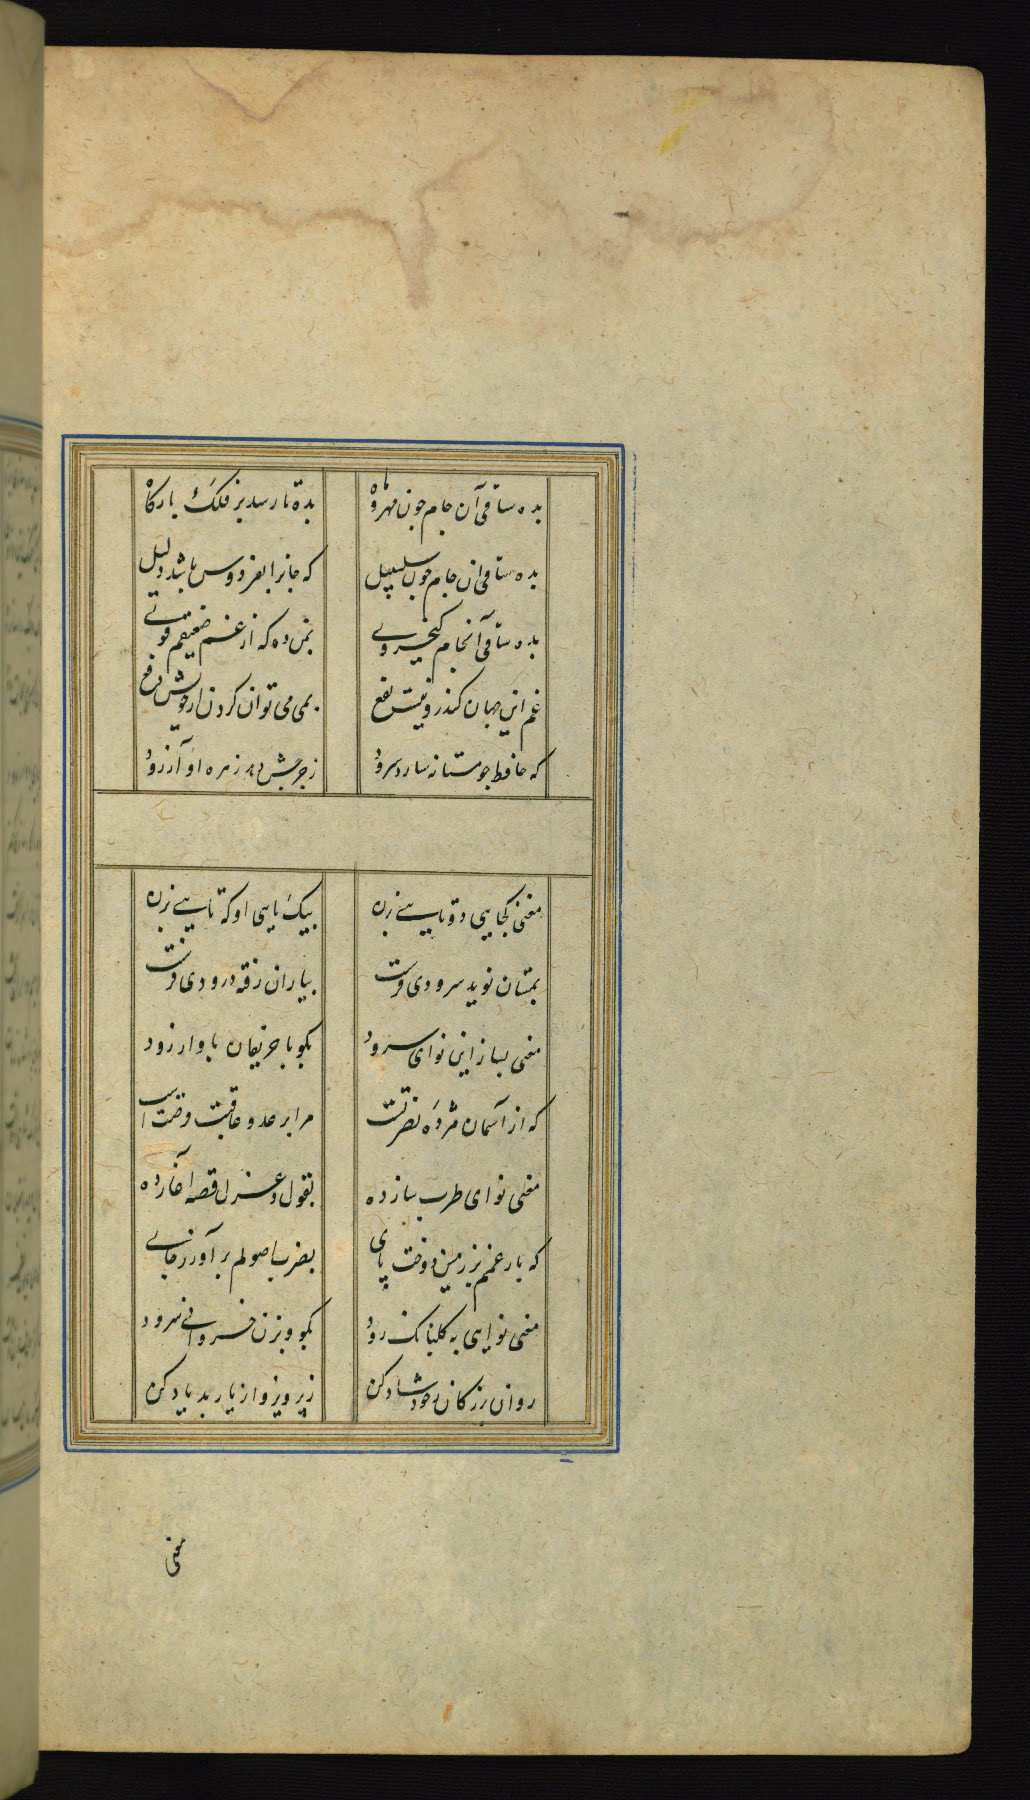 بده ساقی آن جام چون مهر و ماه بده تا رسد بر فلک بارگاه
بده ساقی ان جام چون سلسبیل که جانرا بفردوس باشد دلیل
بده ساقی آنجام کیخسروی بمن ده که از غم ضعیفم قوی
غم این جهان کندرو نیست نفع بمی می توان کردن از خویش دفع
که حافظ چو مستانه سازد سرود ز چرخش دهد زهره آواز رود
مغنی کجایی دوتایی بزن بیک تایی او که تایی بزن
بمستان نوید سرودی فرست بیاران رفته درودی فرست
مغنی بساز این نوای سرود بگو با حریفان باواز رود
که از آسمان مژده نصرتست مرا بر عدو عاقبت فرصتست
مغنی نوای طرب ساز ده بقول و غزل قصه آغاز ده
که بار غمم بر زمین دوخت پای بضرب اصولم برآور ز جای
مغنی نوایی به گلبانگ رود بگو و بزن خسروانی سرود
روان بزرگان ز خود شاد کن ز پرویز و از باربد یاد کن
مغنی